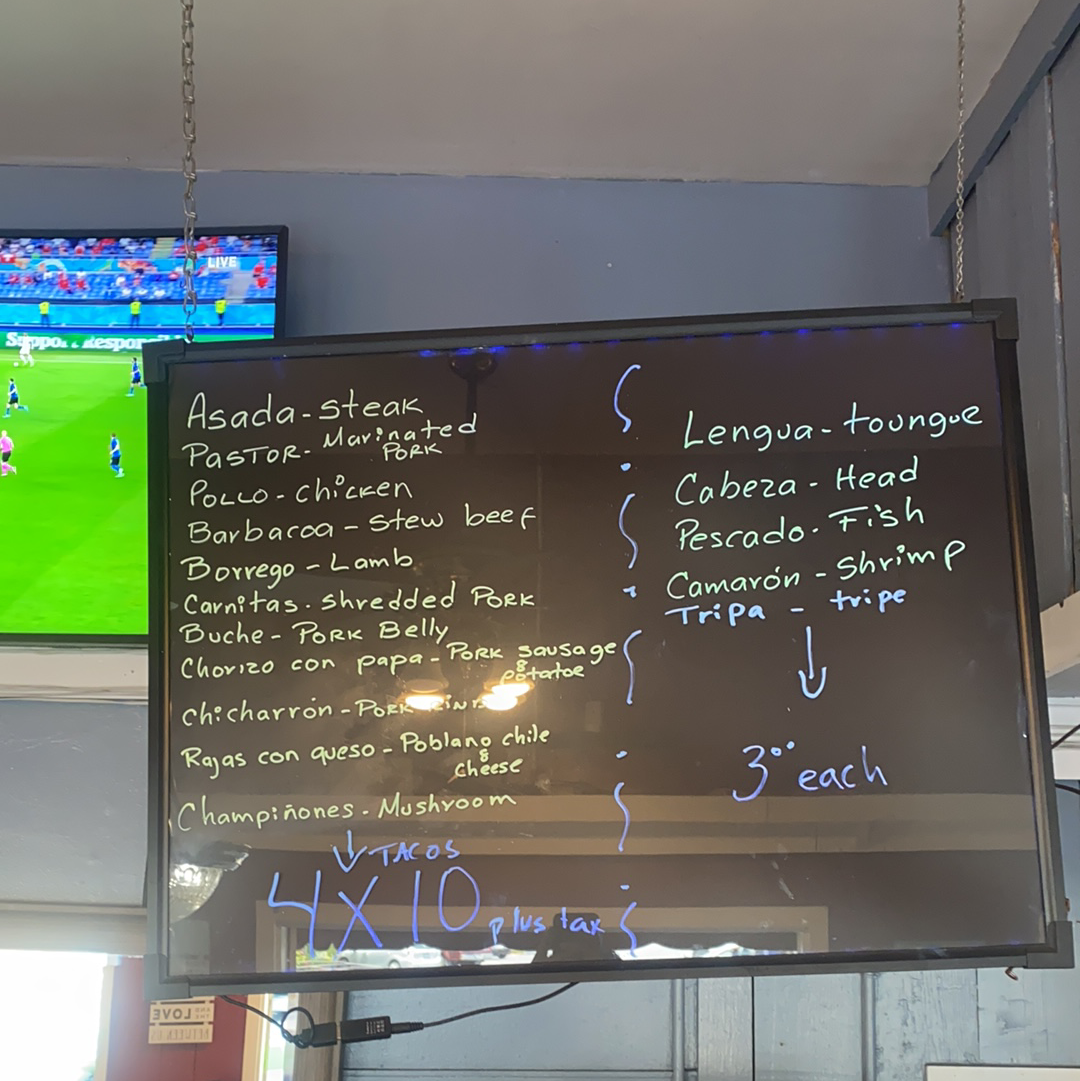 LIVE
Asada - steak
PASTOR - Marinated
PORK
POLLO - chicken
Barbacoa - Stew beef
Borrego - Lamb
Carnitas. shredded PORK
Buche - PORK Belly
Chorizo con papa - PORK sausage
&
potatoe
Chicharrón - PORK
Rajas con queso - Poblano chile
&
cheese
Champiñones - Mushroom
↓ TACOS
4X10 plus tax
Lengua - toungue
Cabeza - Head
Pescado - Fish
Camarón - Shrimp
Tripa - tripe
↓
3°° each
LOVE
BETWEEN US